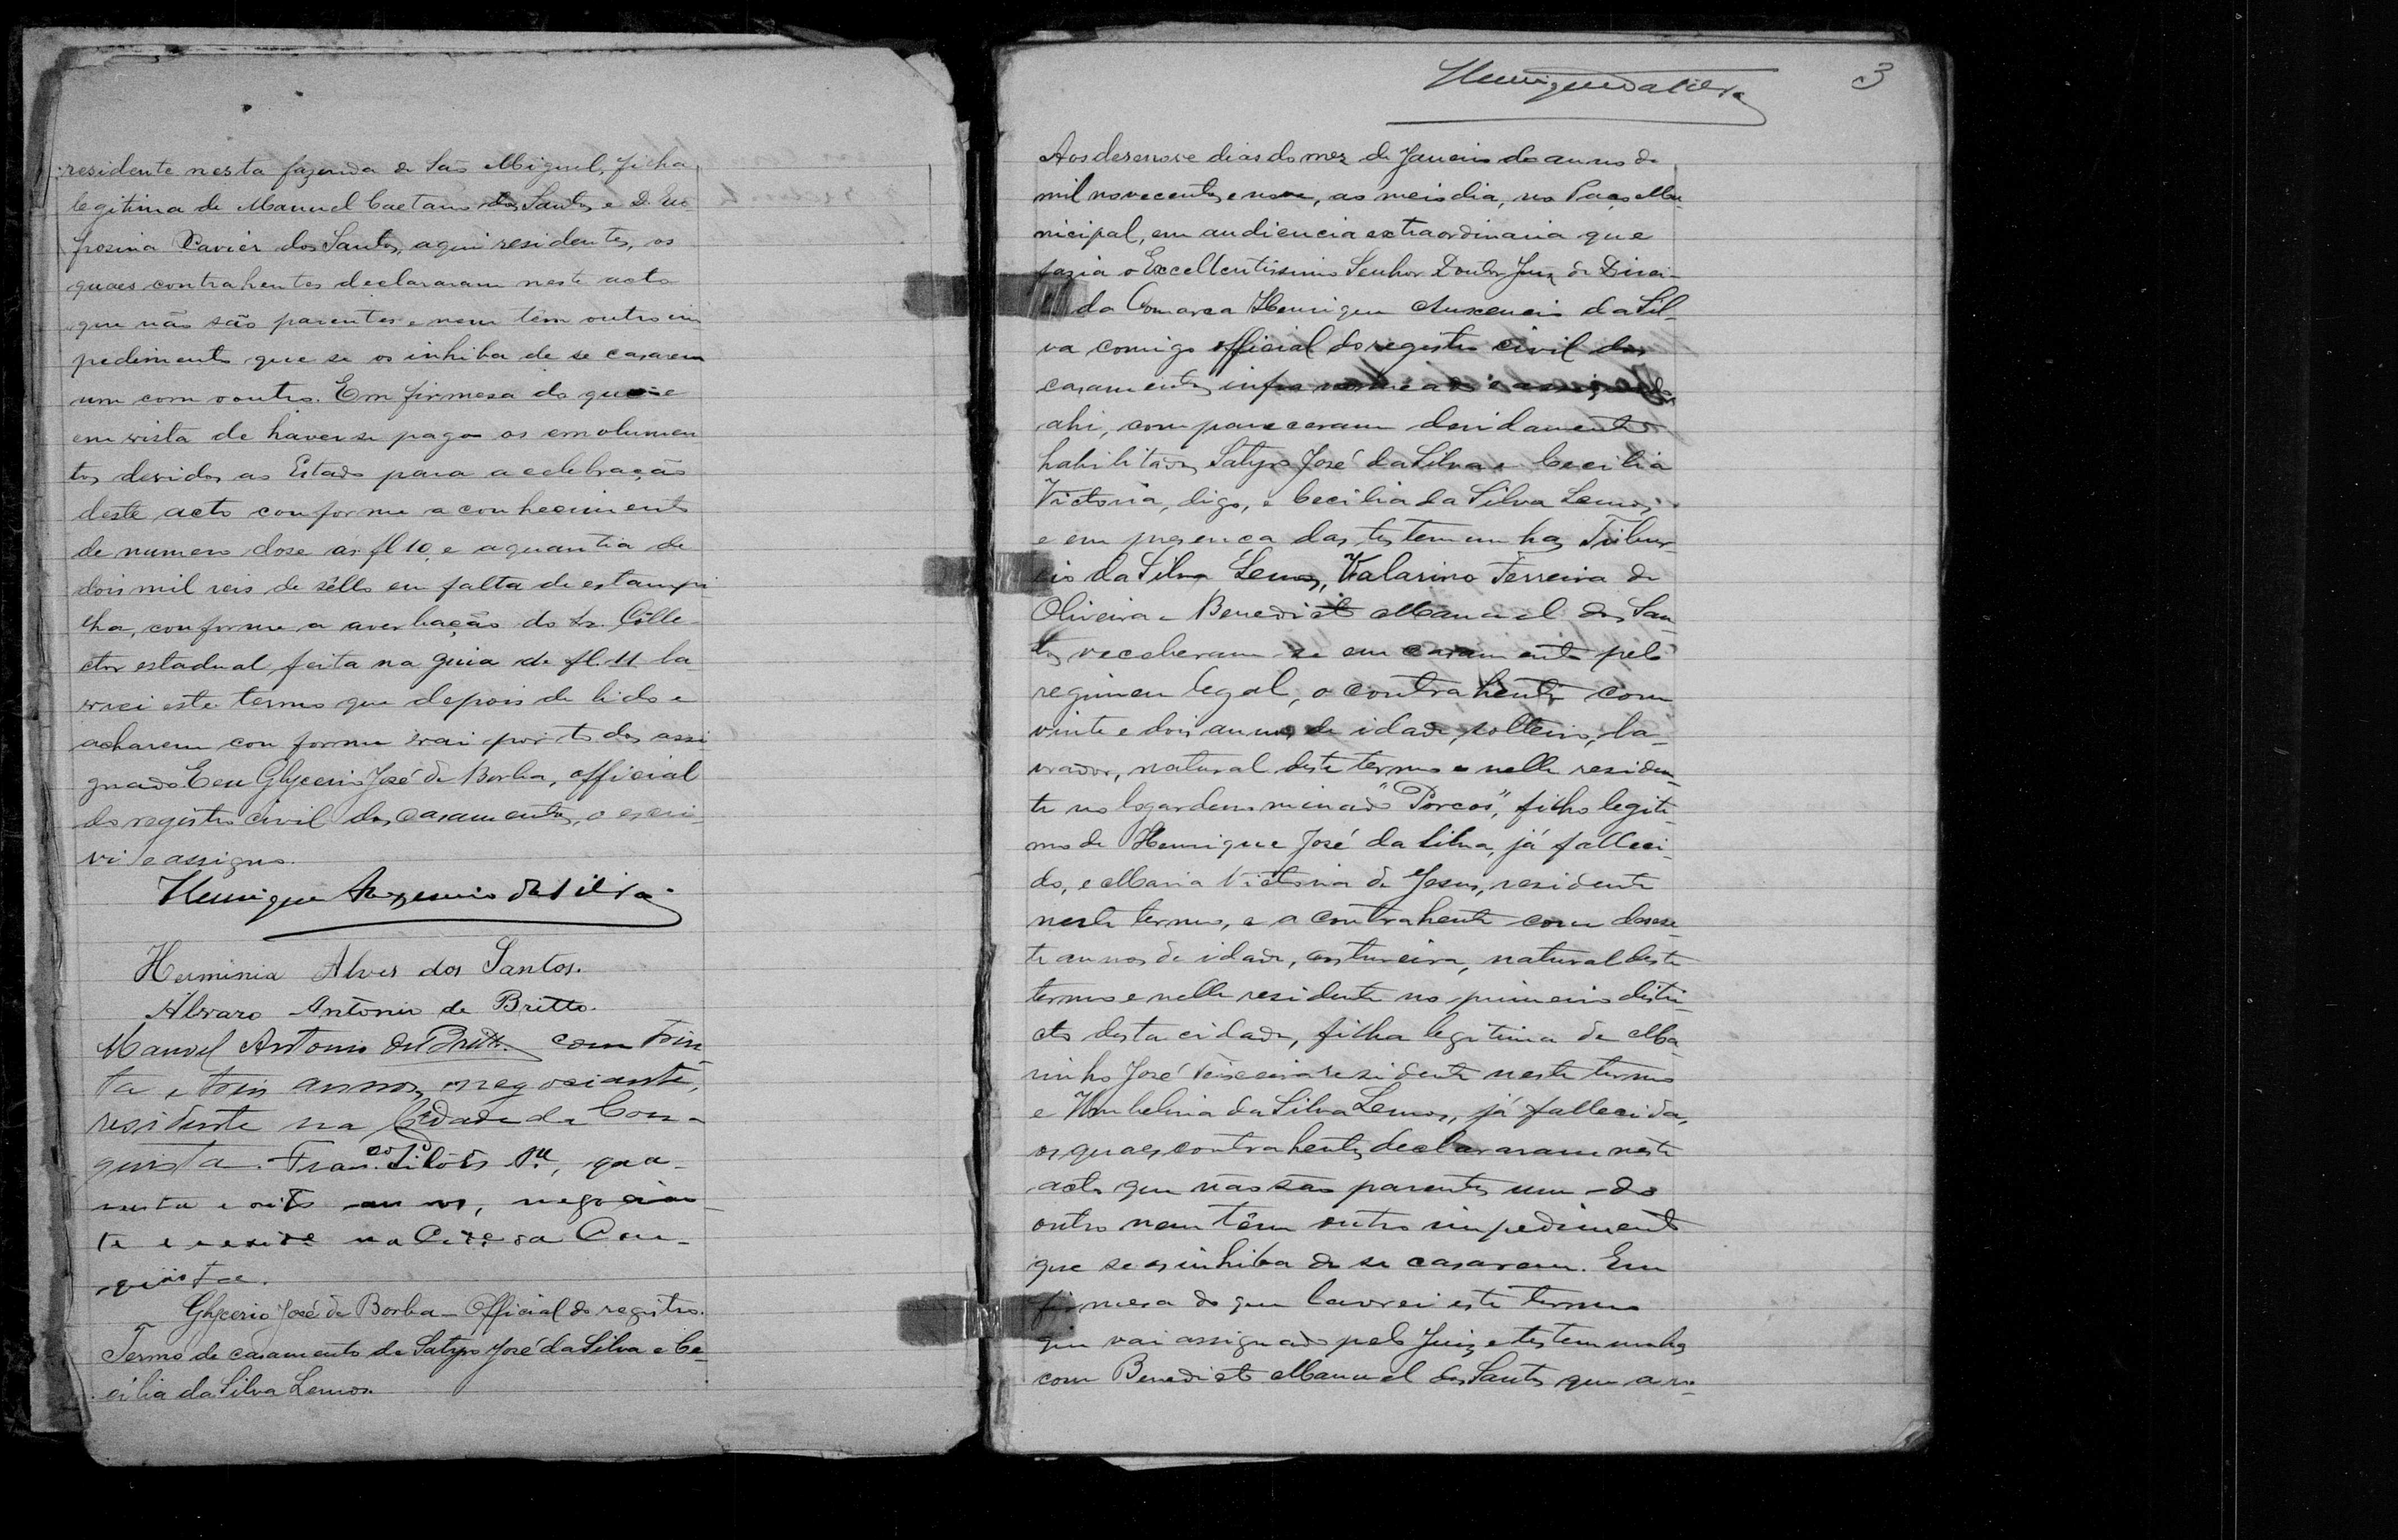 residente nesta fazenda de São Miguel, filha
legitima de Manuel Caetano dos Santos e D. Eu
frosina Xavier dos Santos, aqui residentes, os
quaes contrahentes declararam neste acto
que não são parentes e nem têm outro im
pedimento que se os inhiba de se casarem
um com o outro. Em firmesa do que e
em vista de haver se pago os emolumen
tos devidos ao Estado para a celebração
deste acto conforme a conhecimento
de numero dose ás fl 10, e a quantia de
dois mil reis de sêllo em falta de estampi
lha, conforme a averbação do Sr. Colle-
ctor estadual feita na guia de fl. 11 la-
vrei este termo que depois de lido e
acharem conforme vai por todos assi
gnado. E eu Glycerio José de Borba, official
do registro civil dos casamentos, o escre-
vi e assigno.
Henrique Auxencio da Silva
Herminia Alves dos Santos.
Alvaro Antonio de Britto.
Manoel Antonio de Britto. com trin
ta e tres annos, negociante,
residente na Cidade da Con-
quista. Fran.co
renta e oito annos, negocian-
te e reside na Cide da Con-
quista.
Glycerio José de Borba - Official do registro.
Termo de casamento de Satyro José da Silva e Ce-
cilia da Silva Lemos.
Henrique da Silva
3
Aos desenove dias do mez de Janeiro do anno de
mil novecentos e nove, ao meio dia, no Paço Mu-
nicipal, em audiencia extraordinaria que
fazia o Excellentissimo Senhor Doutor Juiz de Direi-
da Comarca Henrique Auxencio da Sil-
va comigo official do registro civil dos
casamentos, infra nomeado e assignado,
ahi, compareceram devidamente
habilitados Satyro José da Silva e Cecilia
Victoria, digo, e Cecilia da Silva Lemos,
e em presença das testemunhas Tibur-
cio da Silva Lemos, Valarino Ferreira de
Oliveira e Benedicto Manuel dos San-
tos receberam se em casamento pelo
regimen legal, o contrahente com
vinte e dois annos de idade, solteiro, la-
vrador, natural deste termo e nelle residen-
te no logar denominado "Porcos", filho legiti-
mo de Henrique José da Silva, já falleci-
do, e Maria Victoria de Jesus, residente
neste termo, e a contrahente com desese-
te annos de idade, costureira, natural deste
termo e nelle residente no primeiro distri-
cto desta cidade, filha legitima de Ma-
rinho José Teixeira residente neste termo
e Umbelina da Silva Lemos, já fallecida,
os quaes contrahentes declararam neste
acto que não são parentes um do
outro nem têm outro impedimento
que se os inhiba de se casarem. Em
firmesa do que lavrei este termo
que vai assignado pelo Juiz e testemunhas
com Benedicto Manuel dos Santos que a ro-